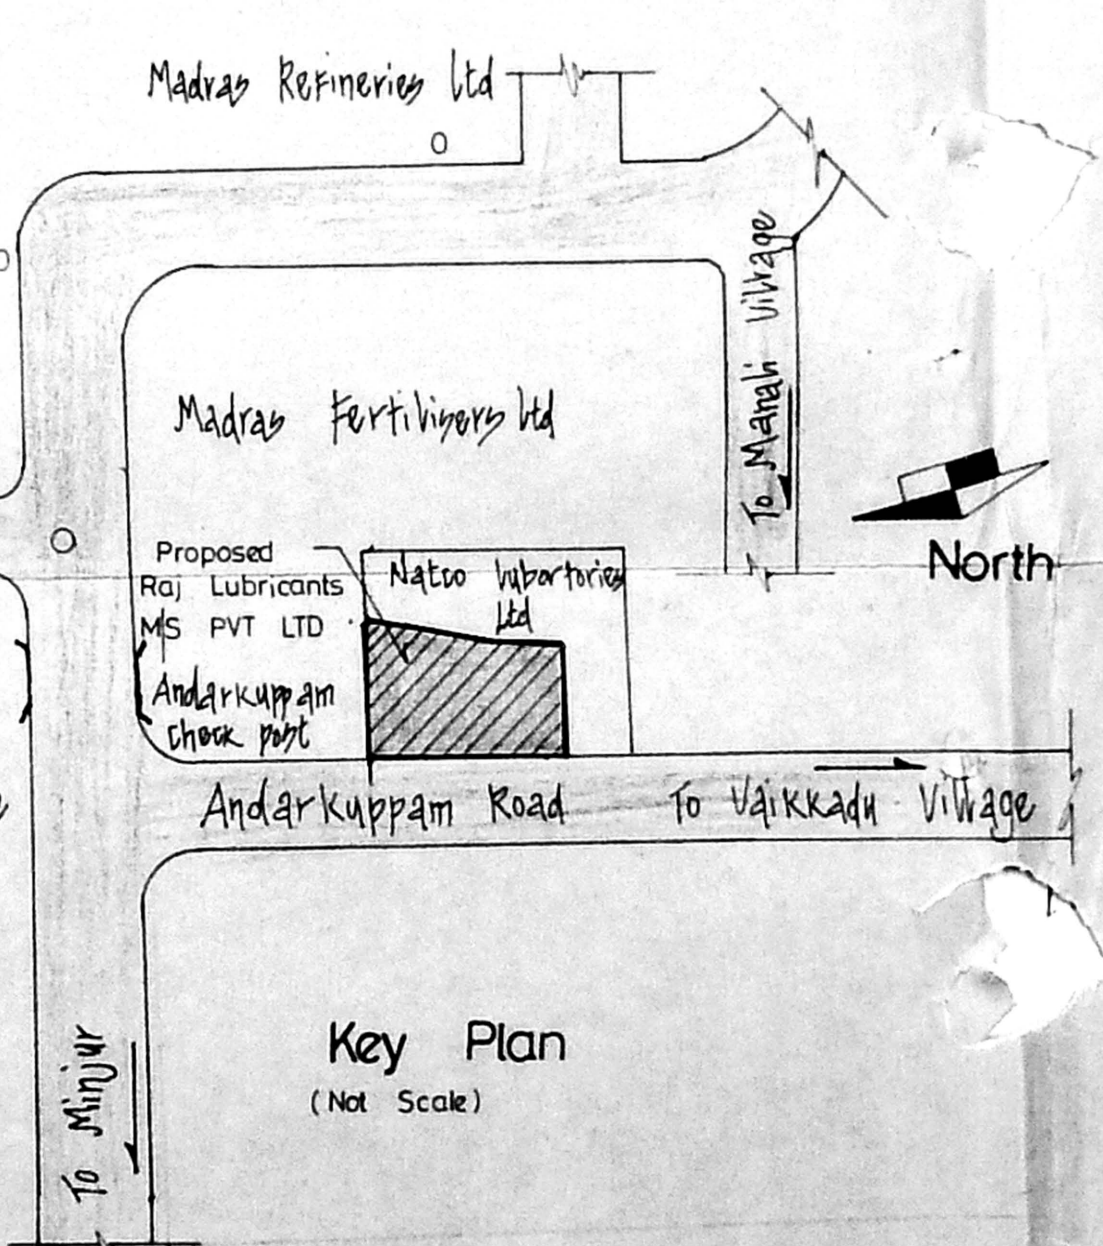 Madras Refineries Ltd
To Manali Village
Madras Fertilisers Ltd
North
Proposed
Raj Lubricants
M/S PVT LTD
Natco Lubortories
Ltd
Andarkuppam
Check post
Andarkuppam Road To Vaikkadu Village
Key Plan
(Not Scale)
To Minjur